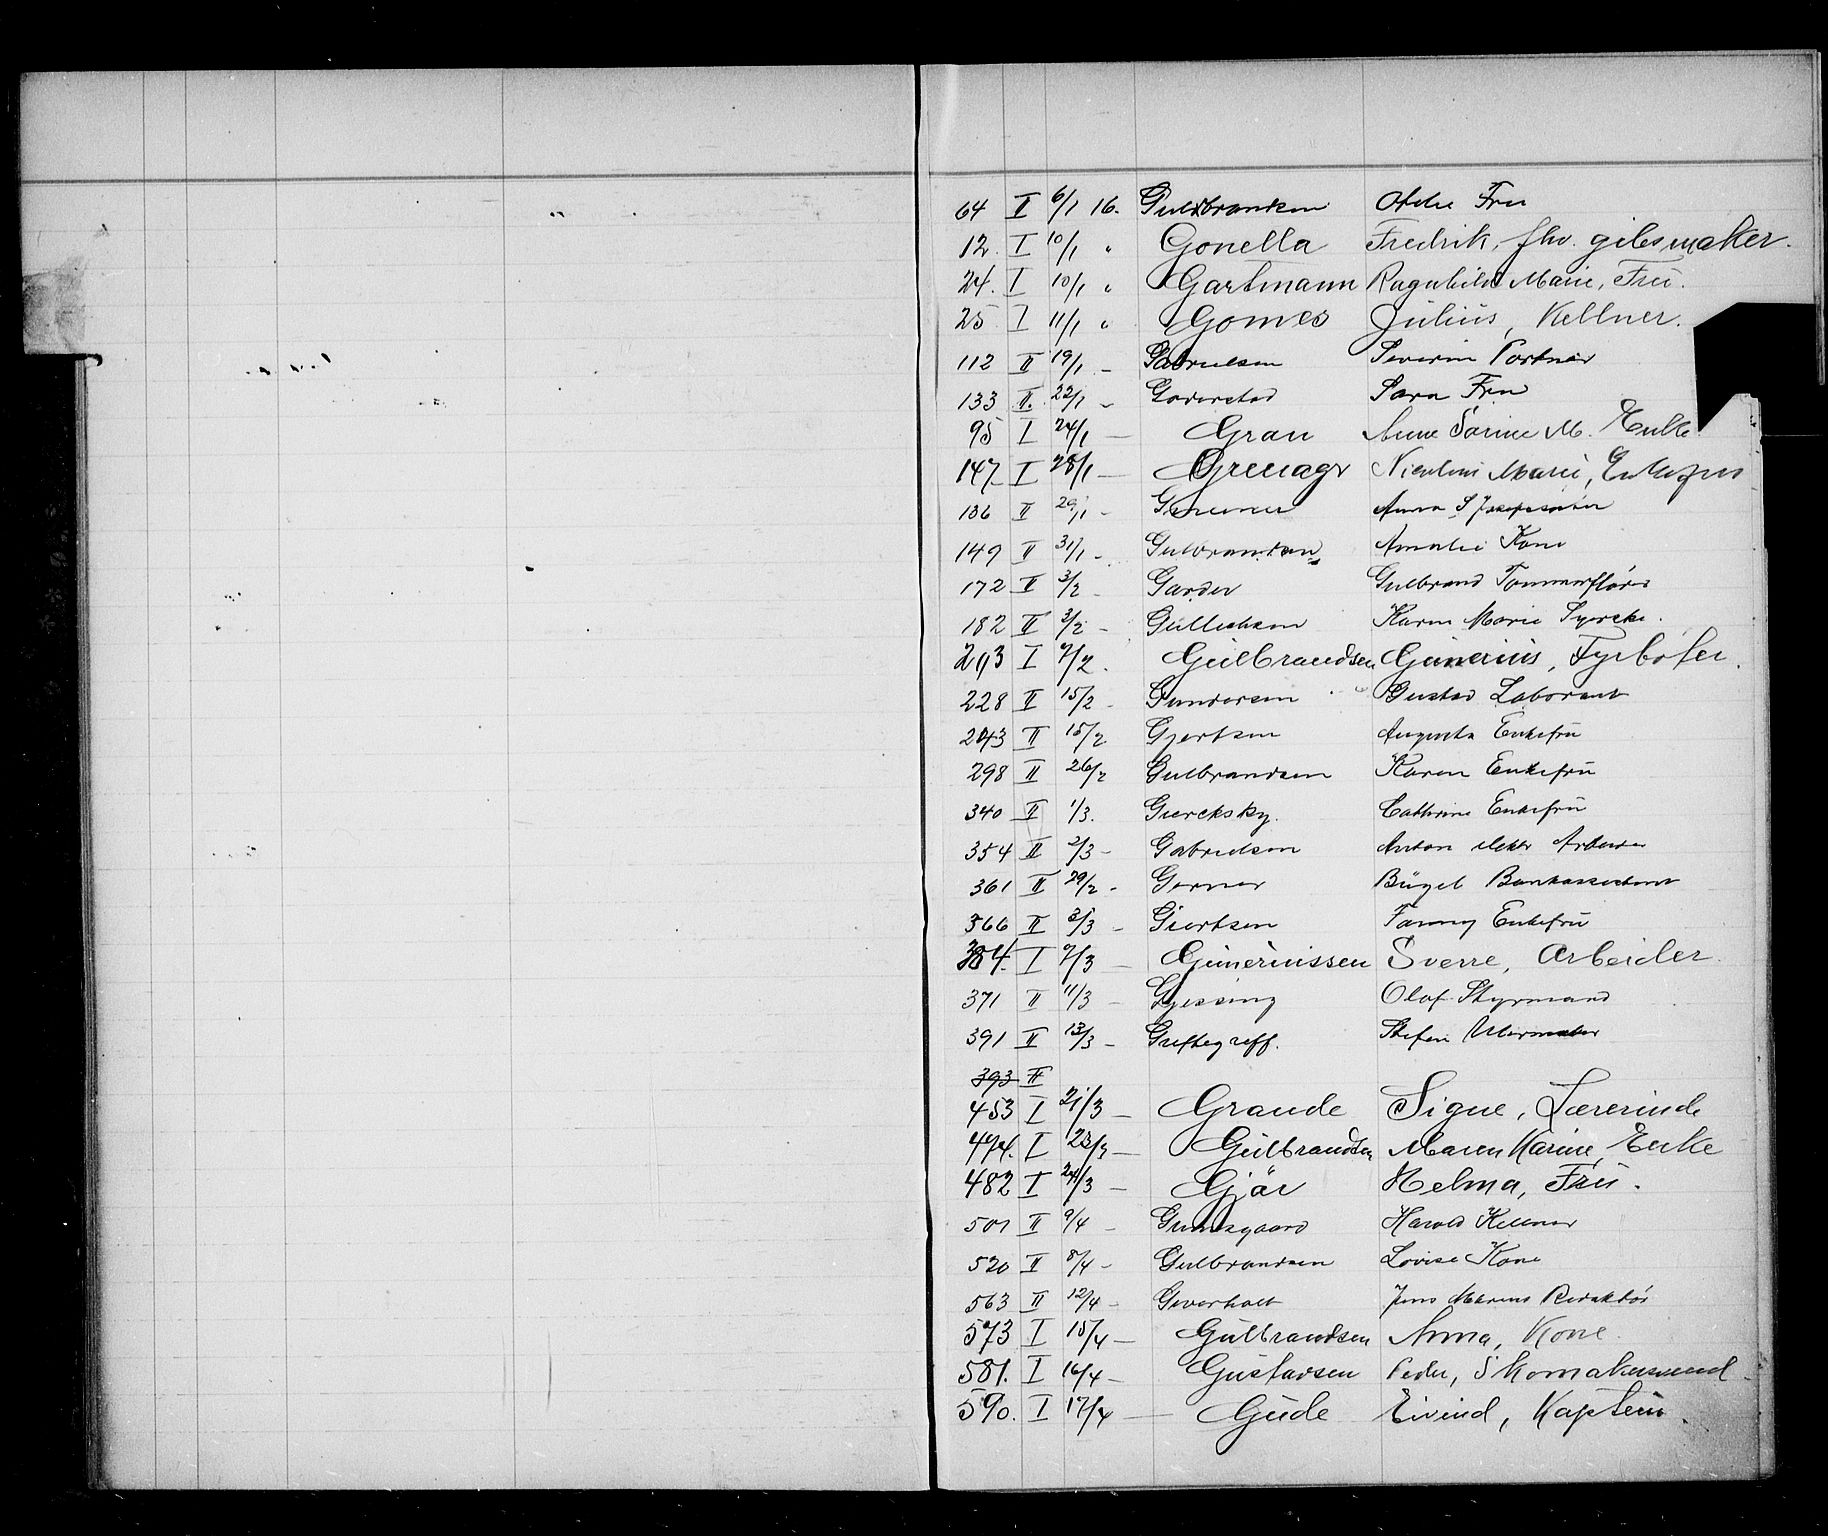 64 II 6/1 16. Guldbrandsen Fru
12. I 10/1 " Gonella Fredrik, fhv. gibsmaker.
24. I 10/1 " Gartmann Ragnhild Marie, Fru.
25 I 11/1 " Gomes Julius, Kellner.
112 II 19/1 - Gabrielsen Severin Portner
133 II. 22/1 - Goderstad Sara Fru
95 I 24/1 - Gran Anne Sorine M. Enke
147 I 28/1 - Grenager Nicoline Marie, Enkefru
136 II 29/1 - Anna S
149 II 31/1 - Gulbrandsen Amalie Kone
172 II 3/2 - Garder Gulbrand Tømmerfløter
182 II 3/2 - Gullichsen Karen Marie Syerske.
203 I 9/2. Gulbrandsen Gunerius, Fyrbøter.
228 II 15/2 - Gundersen Gustad Laborant
243 II 15/2 Gjertsen Augusta Enkefru
298 II 26/2 Gulbrandsen Karen Enkefru
340 II 1/3. Giercksky. Cathrine Enkefru
354 II 2/3 - Gabrielsen Anton elektr Arbeider
361 II 29/2 - Gerner Bügel Bankassistent
366 II 3/3 - Giertsen Fanny Enkefru
384. I 9/3 - Gunerinssen Sverre, Arbeider.
371 II 11/3 - Gjessing Olaf Styrmand
391 II 13/3 - Greftegreff. Stefen Uhrmaker
393 II
453 I 21/3 - Grande Signe, Lærerinde
474. I 23/3 - Gulbrandsen Maren Karine, Enke
482 I 24/3 - Gjør Helma, Fru.
501 II 9/4 - Gundsgaard Harald Kellner
520 II 8/4 - Gulbrandsen Lovise Kone
563 II 12/4 - Geverholt Jens Marius Redaktør
573 I 15/4 - Gulbrandsen Anna, Kone.
581. I 16/4 - Gustavsen Peder, Skomakersvend
590. I 17/4 - Gude Eivind, Kaptein.